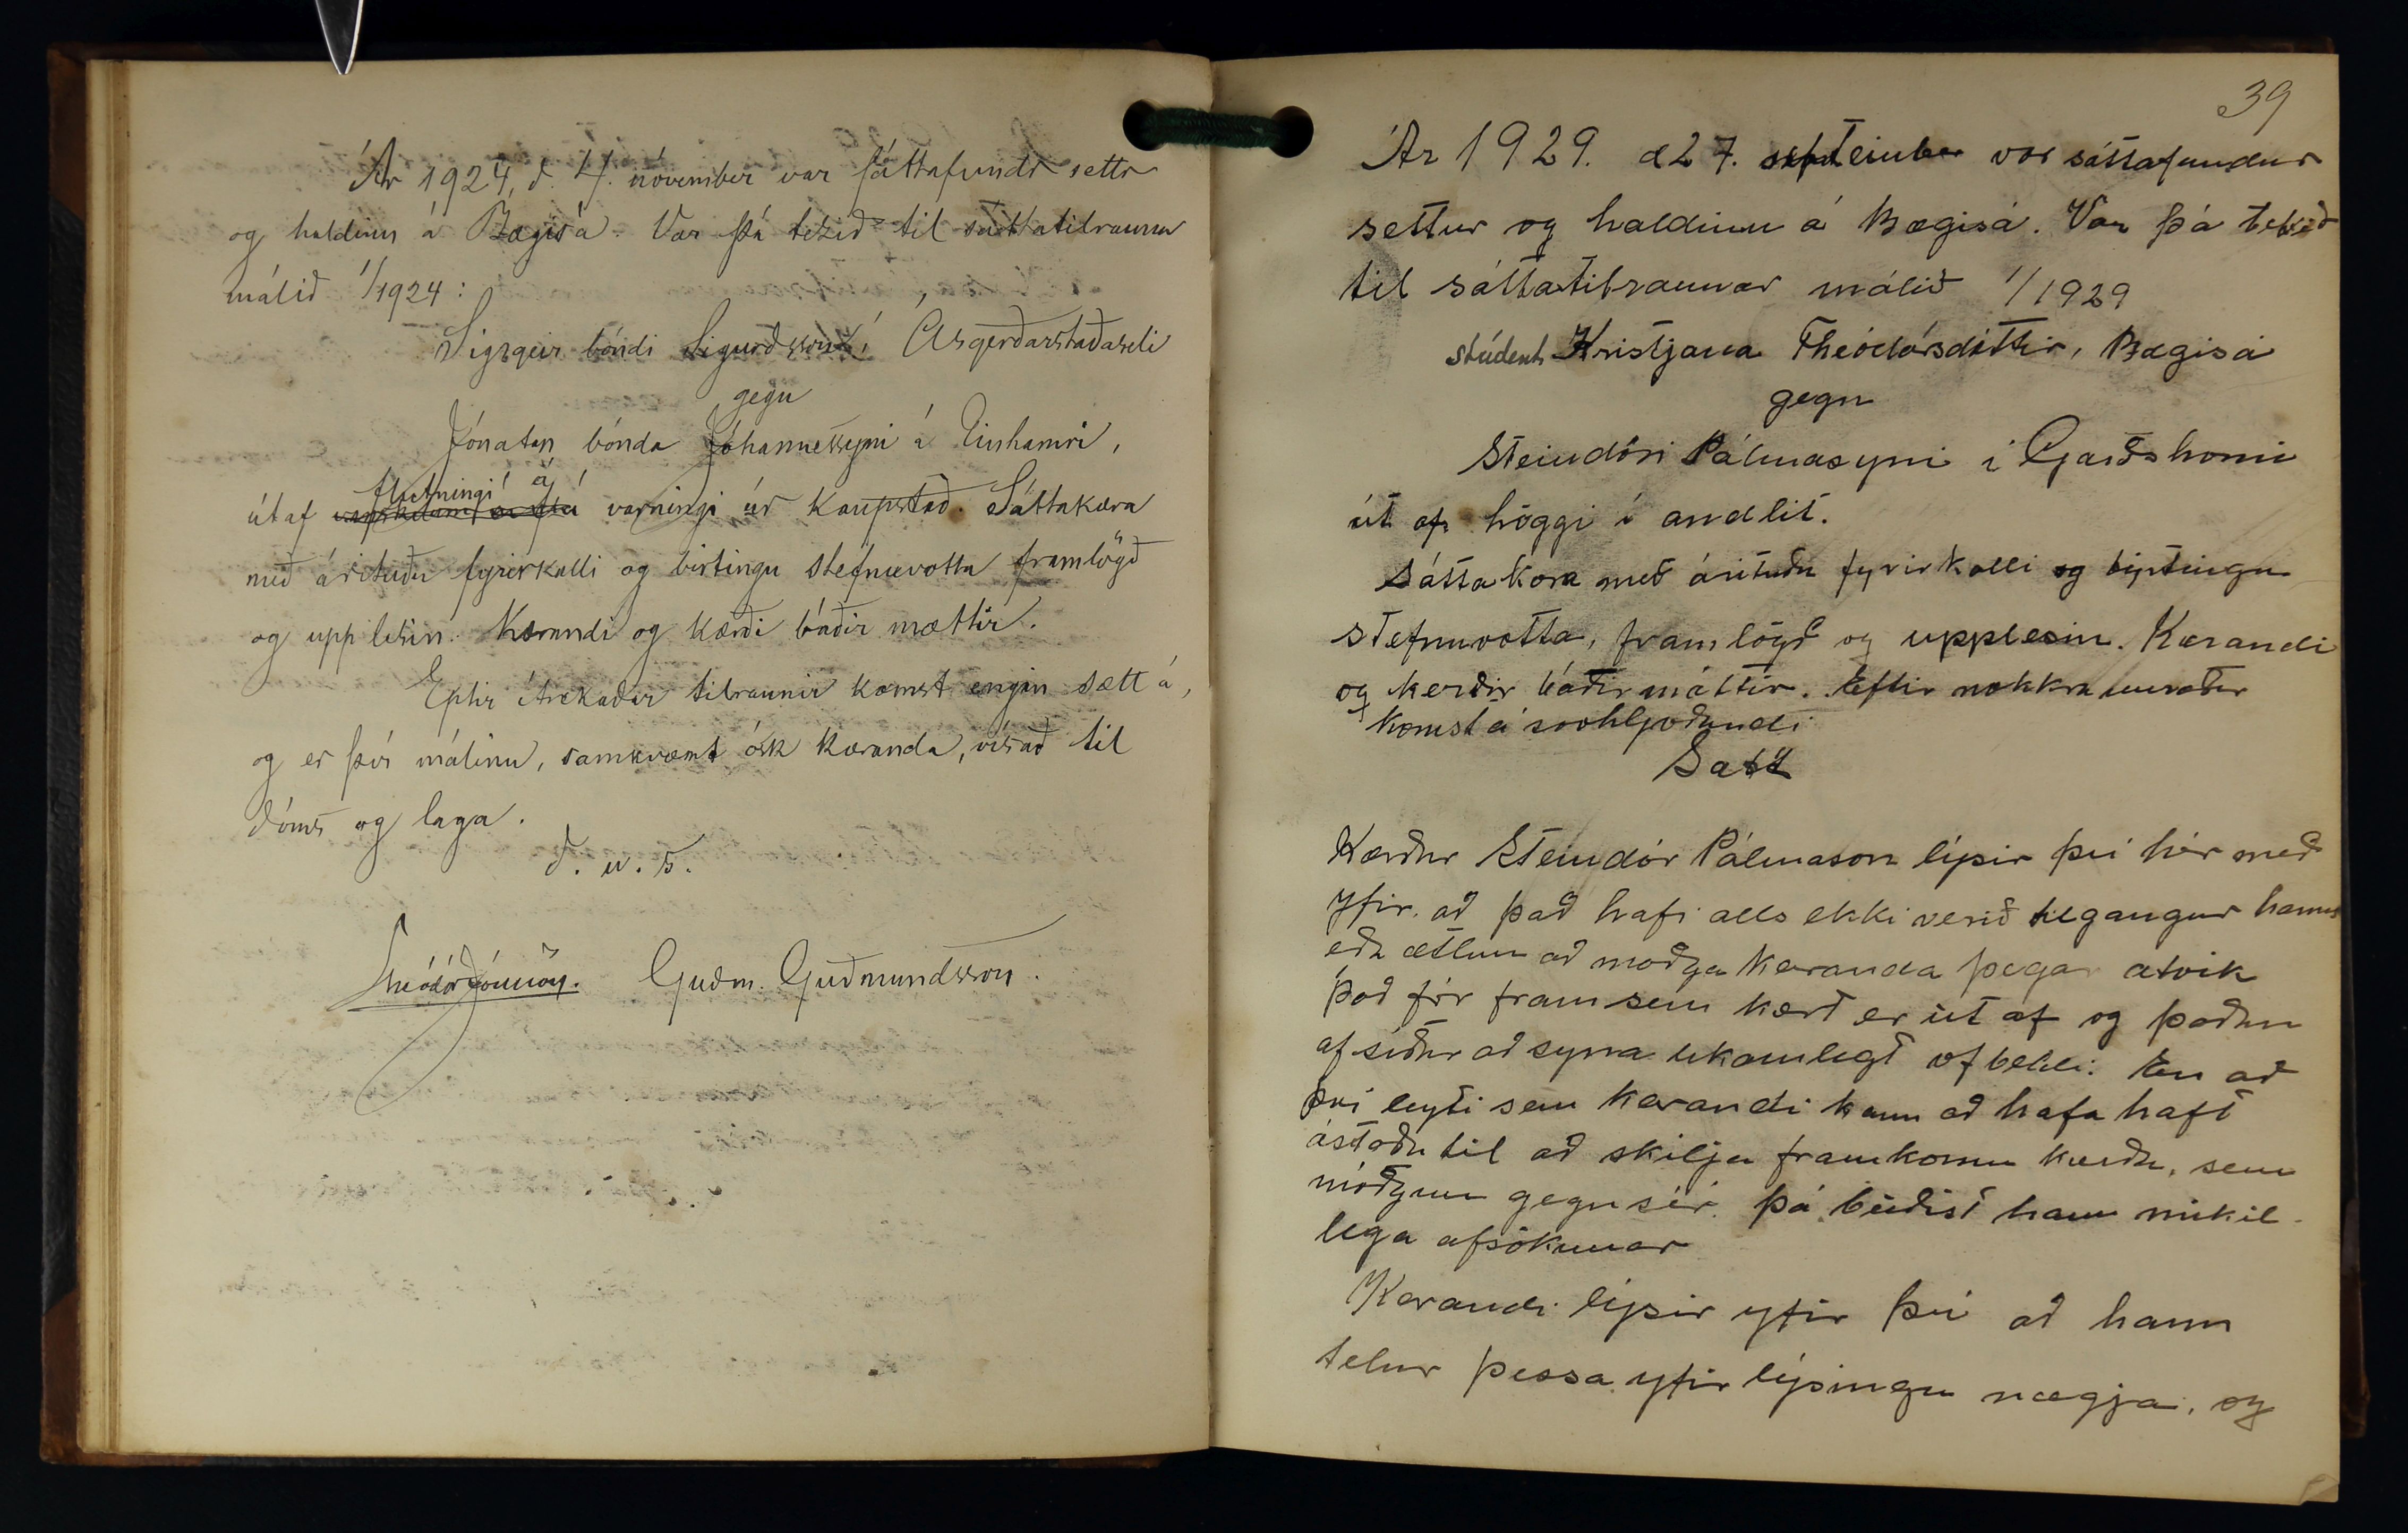 Ár 1924, d. 4. november var sáttafundr settr
og haldinn á Bægisá. Var þá tekið til sáttatilraunar
málið 1/1924:
Sigrgeir bóndi Sigurðsson í Ásgerðarstaðaseli
gegn
Jónatan bónda Jóhannessyni á Einhamri,
flutningi á
út af varningi úr kaupstað. Sáttakæra
með árituðu fyrirkalli og birtingu stefnuvotta framlögð
og upplesin. Kærandi og kærði báðir mættir.
Eptir ítrekaðar tilraunir komst engin sætt á,
og er því málinu, samkvæmt ósk kæranda, vísað til
dóms og laga.
D. u. s.
Theódór Jónsson. Guðm. Guðmundsson.
39
Ár 1929. d 27. september var sáttafundur
settur og haldinn á Bægisá. Var þá tekið
til sáttatilraunar málið 1/1929
stúdent Kristjana Theódórsdóttir, Bægisá
gegn
Steindóri Pálmasyni í Garðshorni
út af höggi í andlit.
Sáttakæra með árituðu fyrirkalli og birtingu
stefnuvotta, framlögð og upplesin. Kærandi
og kærðir báðir mættir. Eftir nokkra umræður
komst á svohljóðandi
Sætt
Kærður Steindór Pálmason lýsir því hér með
yfir, að það hafi alls ekki verið tilgangur hanns
eða ætlun að moðga kæranda þegar atvik
það fór fram sem kært er út af og þaðan
af síður að syna likamlegt ofbeldi. En að
því leyti sem kærandi kann að hafa haft
ástæðu til að skilja framkomu kærða, sem
móðgun gegn sér, þá beiðist hann mikil-
lega afsökunar
Kærandi lýsir yfir því að hann
telur þessa yfirlýsingu nægja, og